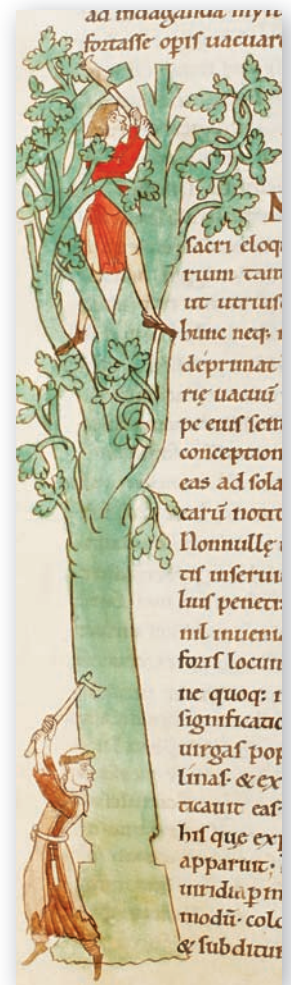 ad indaganda myst
fortasse opis uacuare
N
sacri eloq
rium tam
ut utriusq
hunc neq; n
deprimat
rię uacuū
pe eius sem
conception
eas ad sola
carū notit
Nonnullę
tis inserui
lius penetr
nil inuenia
foris locun
ne quoq: 
significatio
uirgas pop
linas· & ex
ticauit eas·
his que exp
apparuit·
uiridia p in
modū· colo
& subditur